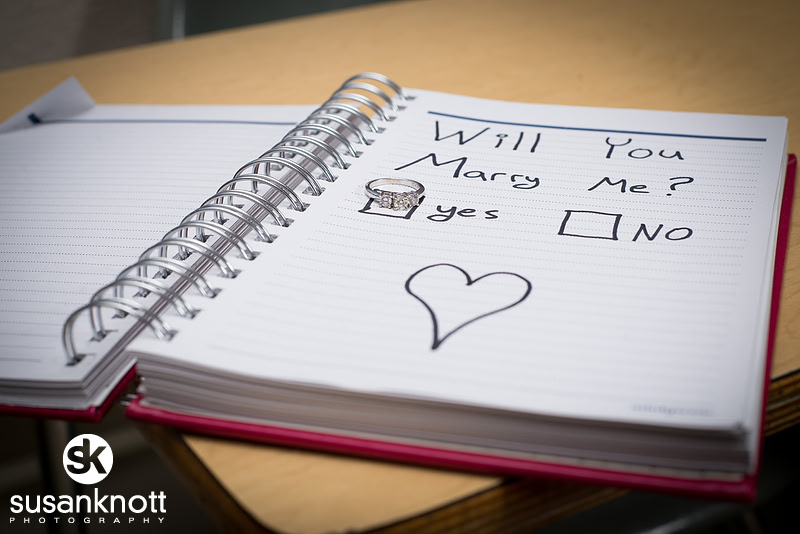 Will You
Marry Me?
yes NO
sk
susanknott
PHOTOGRAPHY